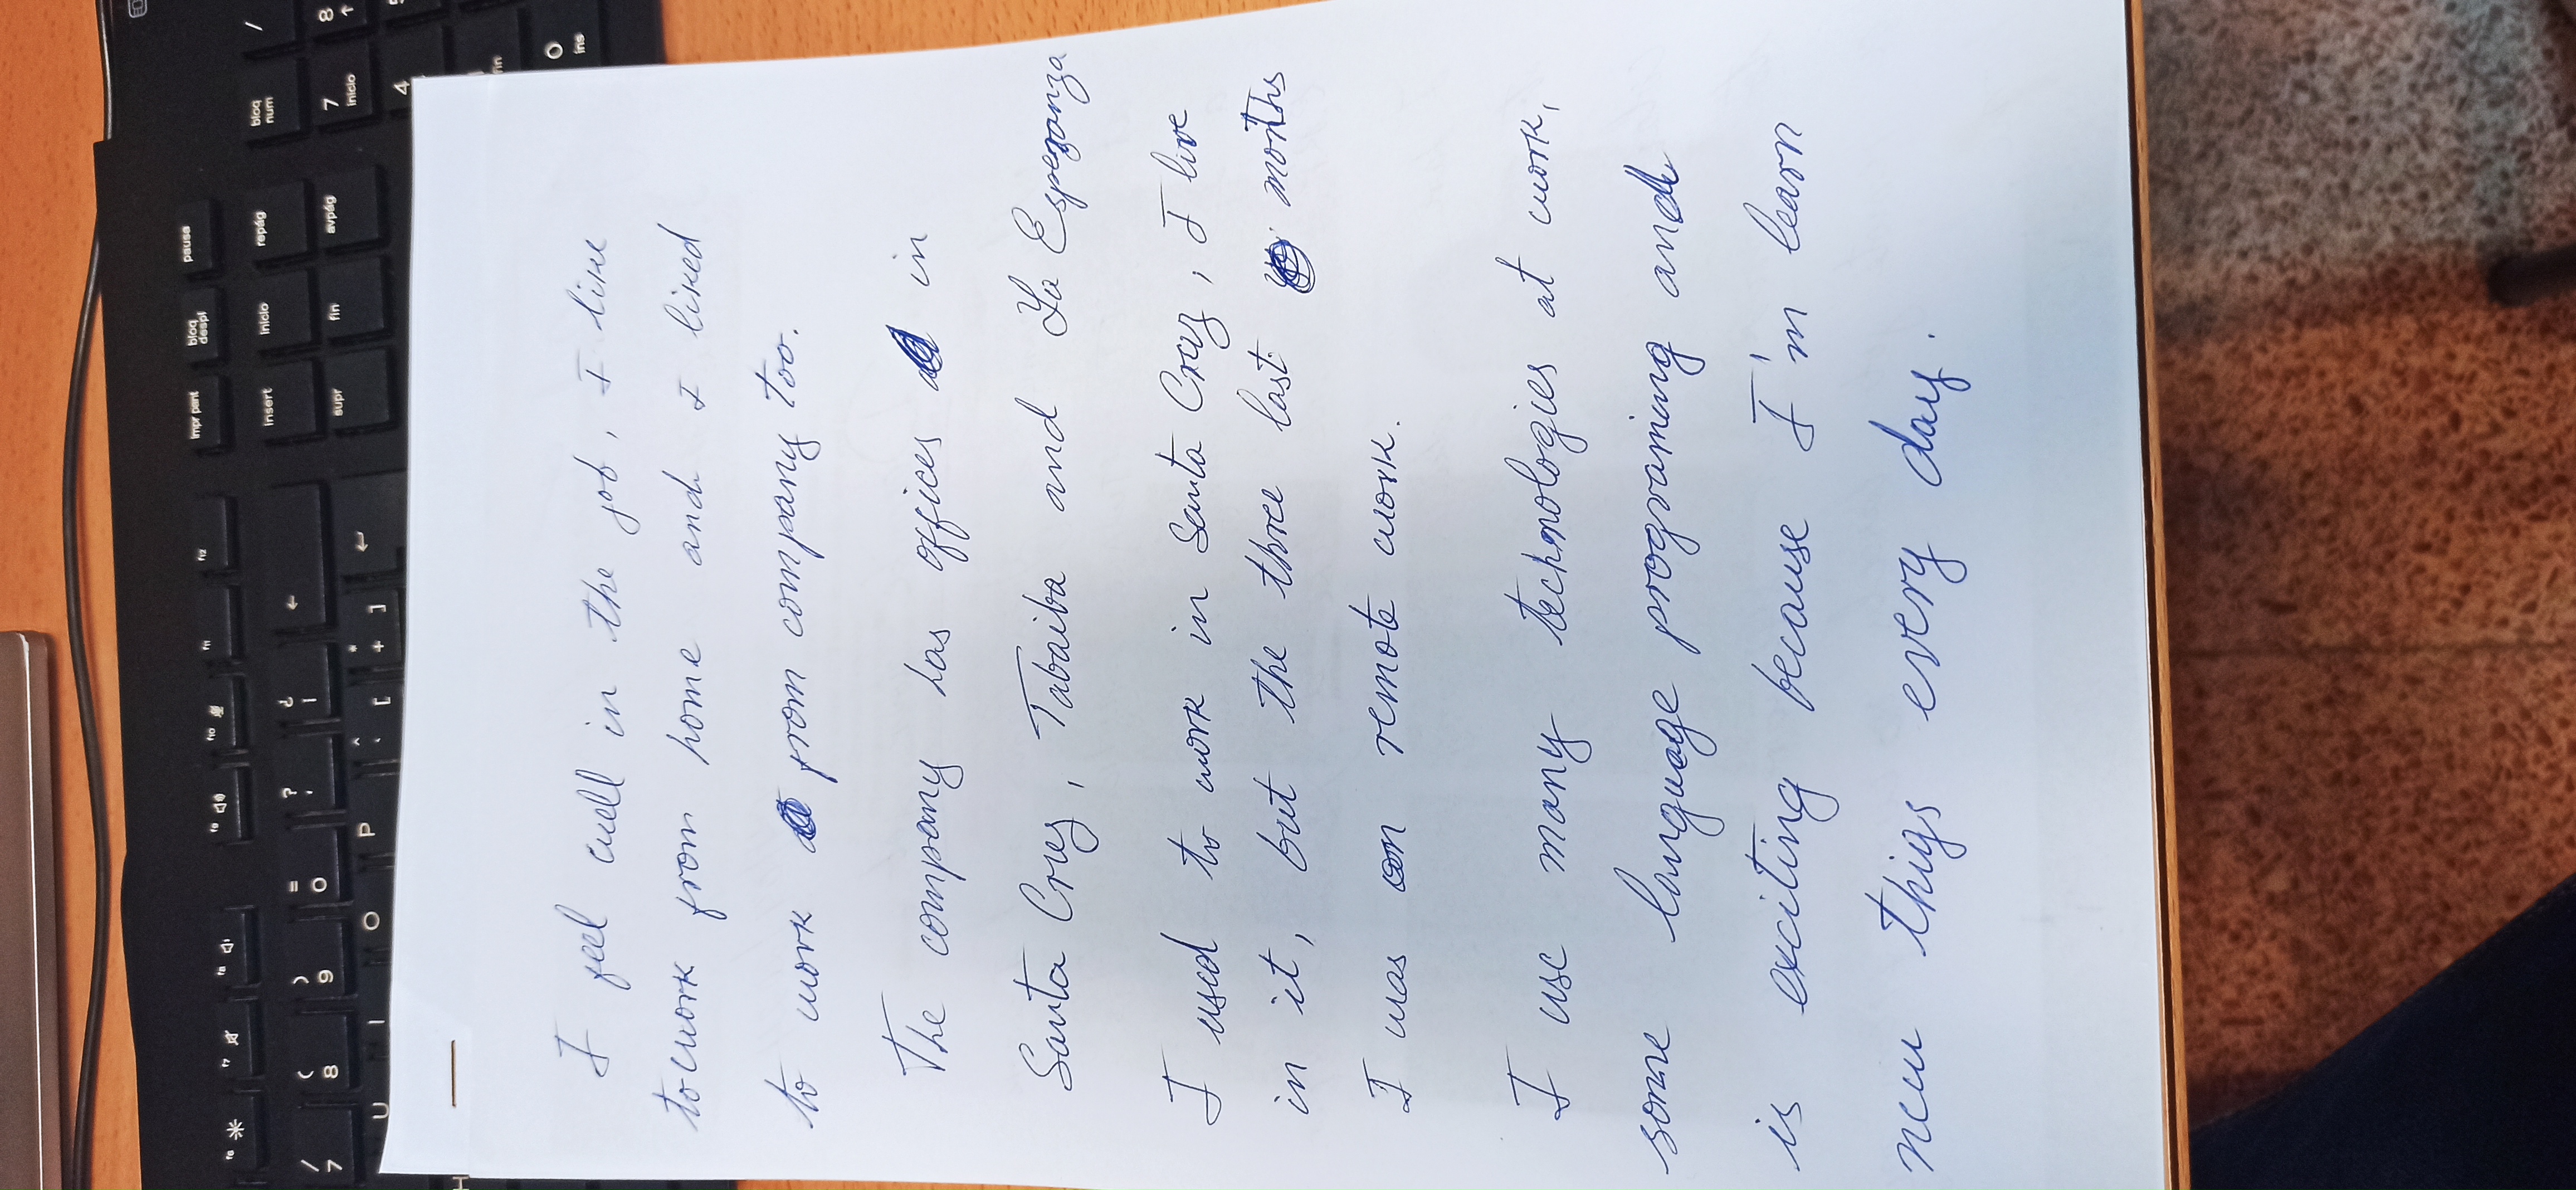 f6 f7 f8 f9 f10 f11 f12 impr pant bloq despl pausa
/ 7 ( 8 ) 9 = 0 ? ' ¿ ¡ ← insert inicio repág bloq num /
U I O P ^ ` [ * + ] supr fin avpág 7 inicio 8
H 4 5
fin
0 ins
I feel well in the job, I like
to work from home and I liked
to work from company too.
The company has offices in
Santa Cruz, Tabaiba and La Esperanza
I used to work in Santa Cruz, I love
in it, but the three last months
I was on remote work.
I use many technologies at work,
some language programing and
is exciting because I'm learn
new thigs every day.